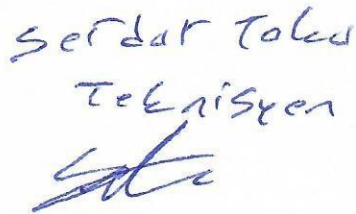 Serdar Toku
Teknisyen